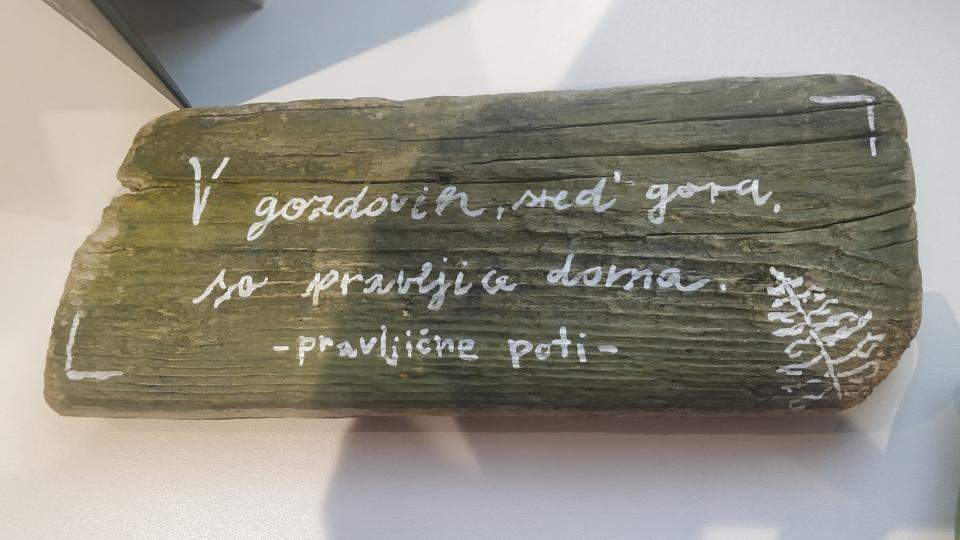 V gozdovih, sred' gora,
so pravljice doma.
-pravljične poti-